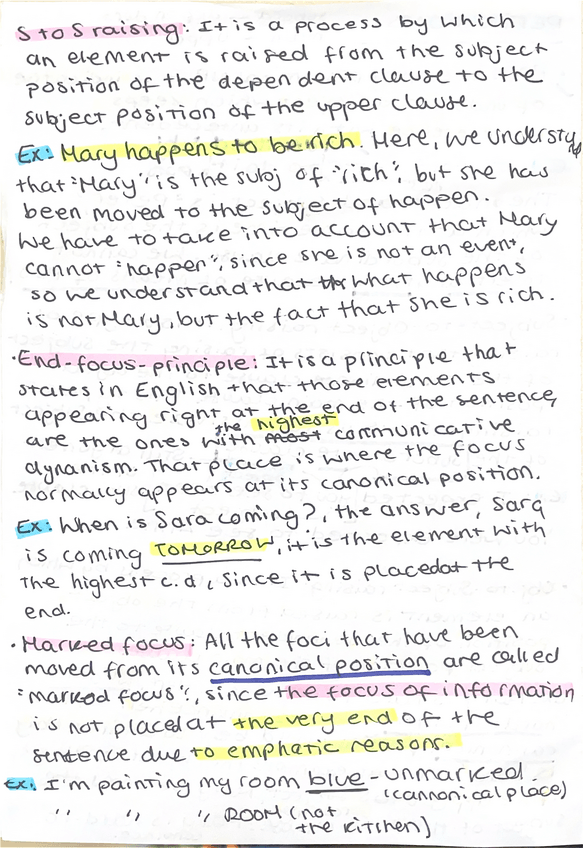 S to S raising: It is a process by which
an element is raised from the subject
position of the dependent clause to the
subject position of the upper clause.
Ex: Mary happens to be rich. Here, we understand
that "Mary" is the subj of "rich", but she has
been moved to the subject of happen.
We have to take into account that Mary
cannot "happen", since she is not an event,
so we understand that what happens
is not Mary, but the fact that she is rich.
·End-focus-principle: It is a principle that
states in English that those elements
appearing right at the end of the sentence,
are the ones with the highest communicative
dynanism. That place is where the focus
normally appears at its canonical position.
Ex: When is Sara coming?, the answer, Sara
is coming TOMORROW, it is the element with
the highest c.d, since it is placed at the
end.
·Marked focus: All the foci that have been
moved from its canonical position are called
"marked focus", since the focus of information
is not placed at the very end of the
sentence due to emphatic reasons.
Ex. I'm painting my room blue - unmarked
(cannonical place)
" " " ROOM (not
the kitchen)